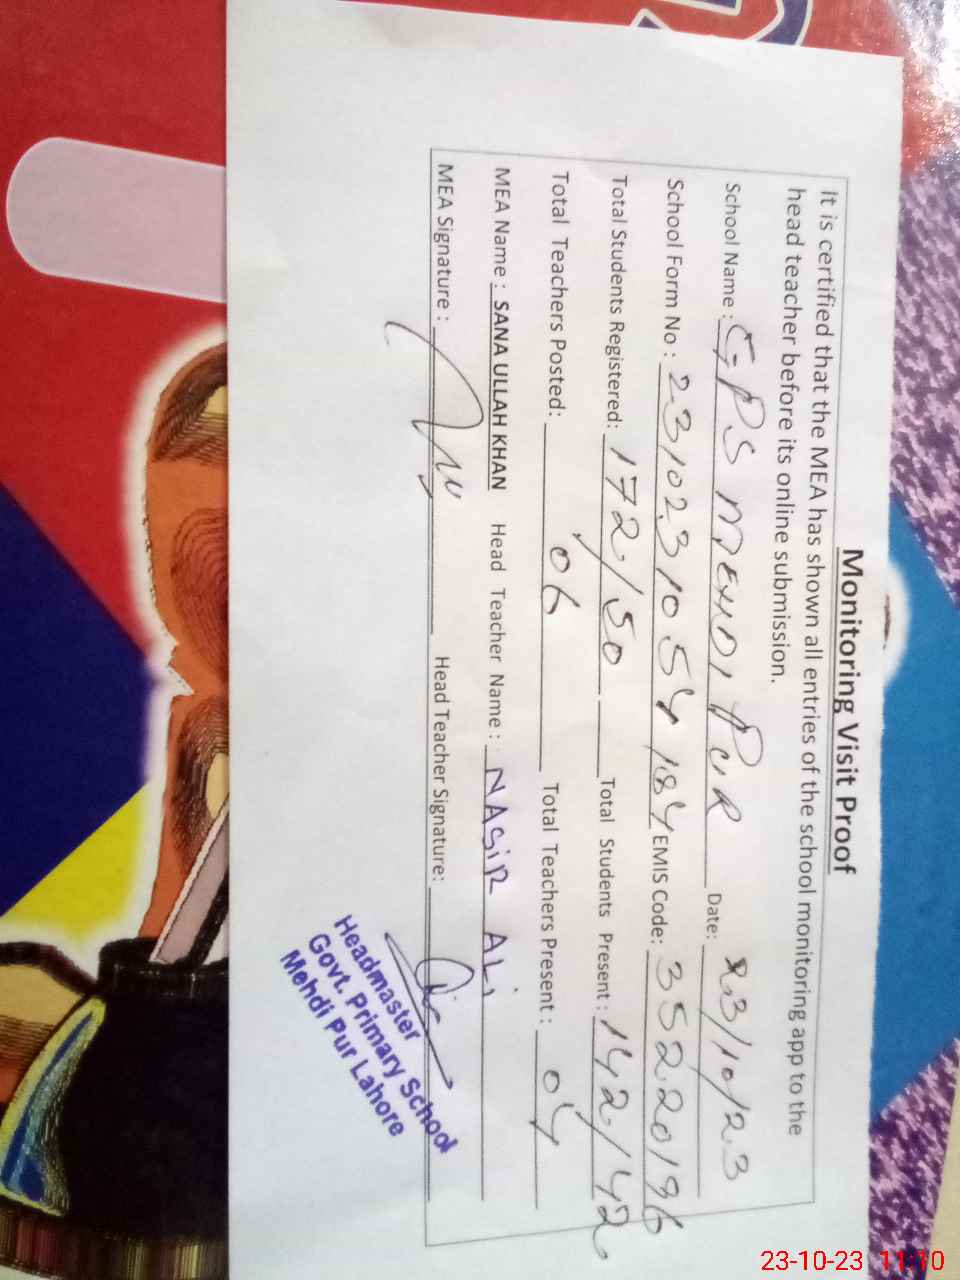 Monitoring Visit Proof
It is certified that the MEA has shown all entries of the school monitoring app to the
head teacher before its online submission.
School Name : GPS MEHDI PUR Date: 23/10/23
School Form No : 2310231054184 EMIS Code: 35220196
Total Students Registered: 172/50 Total Students Present : 142/42
Total Teachers Posted: 06 Total Teachers Present : 04
MEA Name : SANA ULLAH KHAN Head Teacher Name : NASIR ALi
MEA Signature : Head Teacher Signature:
Headmaster
Govt. Primary School
Mehdi Pur Lahore
23-10-23 11:10